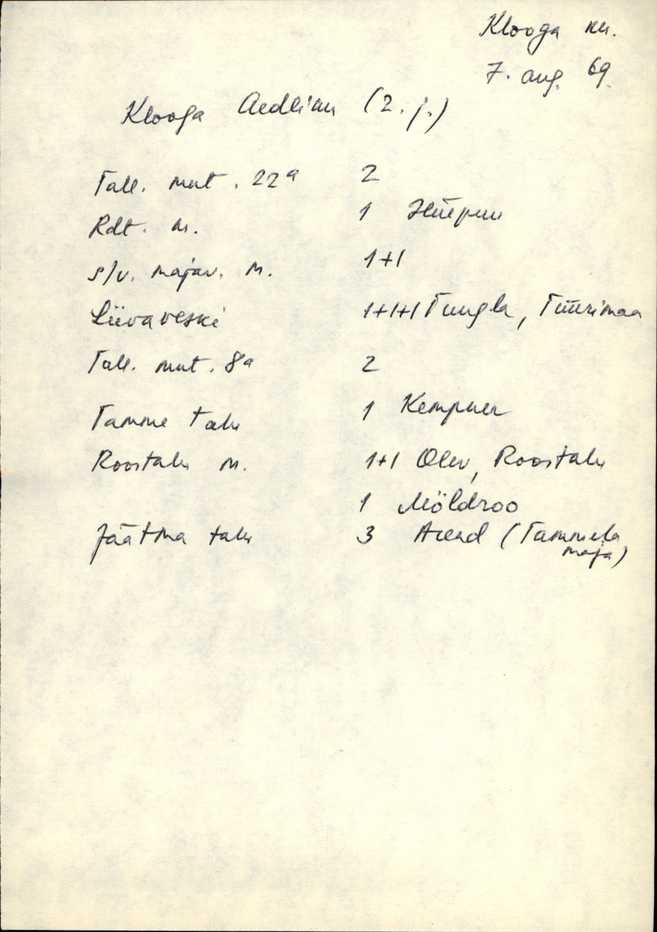 Klooga kn.
7. aug. 69.
Klooga Aedlian (2. j.)
Tall. mnt. 22a 2
Rdt. m. 1
s/v. majav. m. 1+1
Liivaveski 1+1+1 Tungla, Tüürimaa
Tall. mnt. 8a 2
Tamme talu 1 Kempner
Roostalu m. 1+1 Olev, Roostalu
1 Möldroo
Jäätma talu 3 Arend (Tammela
maja)